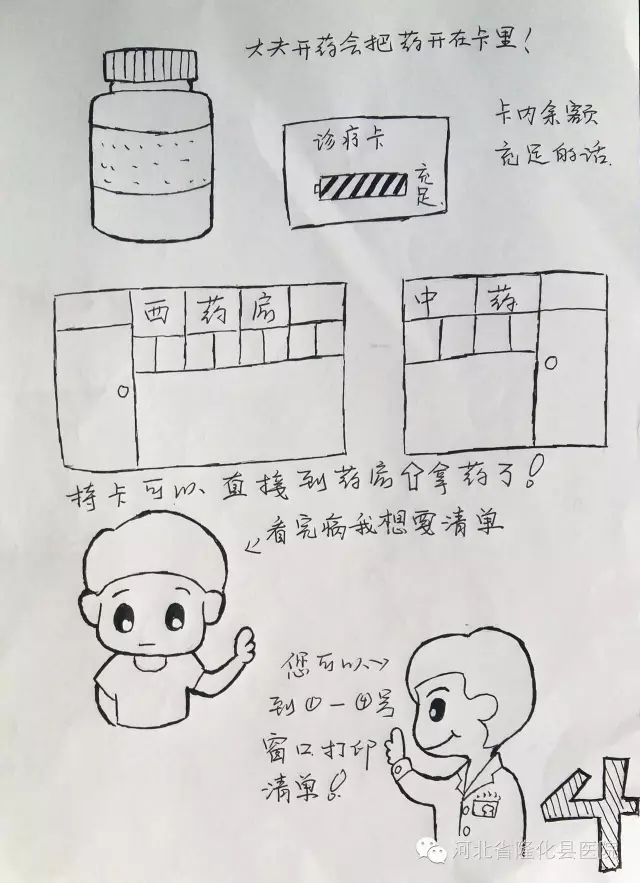 大夫开药会把药开在卡里!
卡内余额
充足的话.
诊疗卡
充足.
西药房
中药
持卡可以直接到药房⇧拿药了!
↙看完病我想要清单
您可以→
到①一④号
窗口打印
清单!
4
河北省隆化县医院